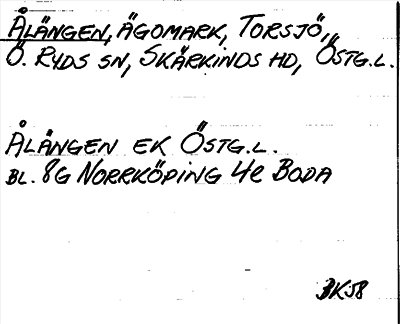 ÅLÄNGEN, ÄGOMARK, TORSJÖ,
Ö. RYDS SN, SKÄRKINDS HD, ÖSTG.L.
ÅLÄNGEN EK ÖSTG.L.
BL. 8G NORRKÖPING 4e BODA
BKJ8